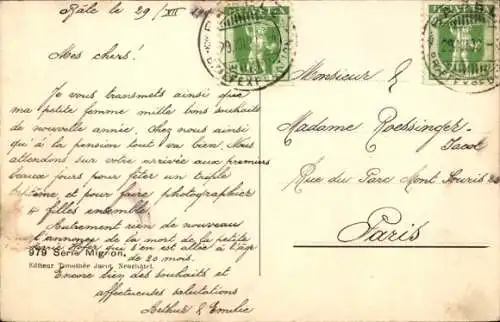 Bâle le 29/XII
Mes chers!
Je vous transmets ainsi que
ma petite femme mille bons souhaits
de nouvelle année. Chez nous ainsi
qui à la pension tout va bien. Nous
attendons sur votre arrivée aux premiers
beaux jours pour fêter un triple
et pour faire photographier
4 filles ensemble.
Autrement rien de nouveau
l'annonce de la mort de la petite
qui s'en est allée à l'âge
979 Série Mignon.
de 20 mois.
Editeur Timothée Jacot, Neuchâtel.
Encore bien des souhaits et
affectueuses salutations
Arthur & Emilie
Monsieur &
Madame Roessinger-
Jacot
Rue du Parc Mont Souris
Paris
HELVETIA
HELVETIA